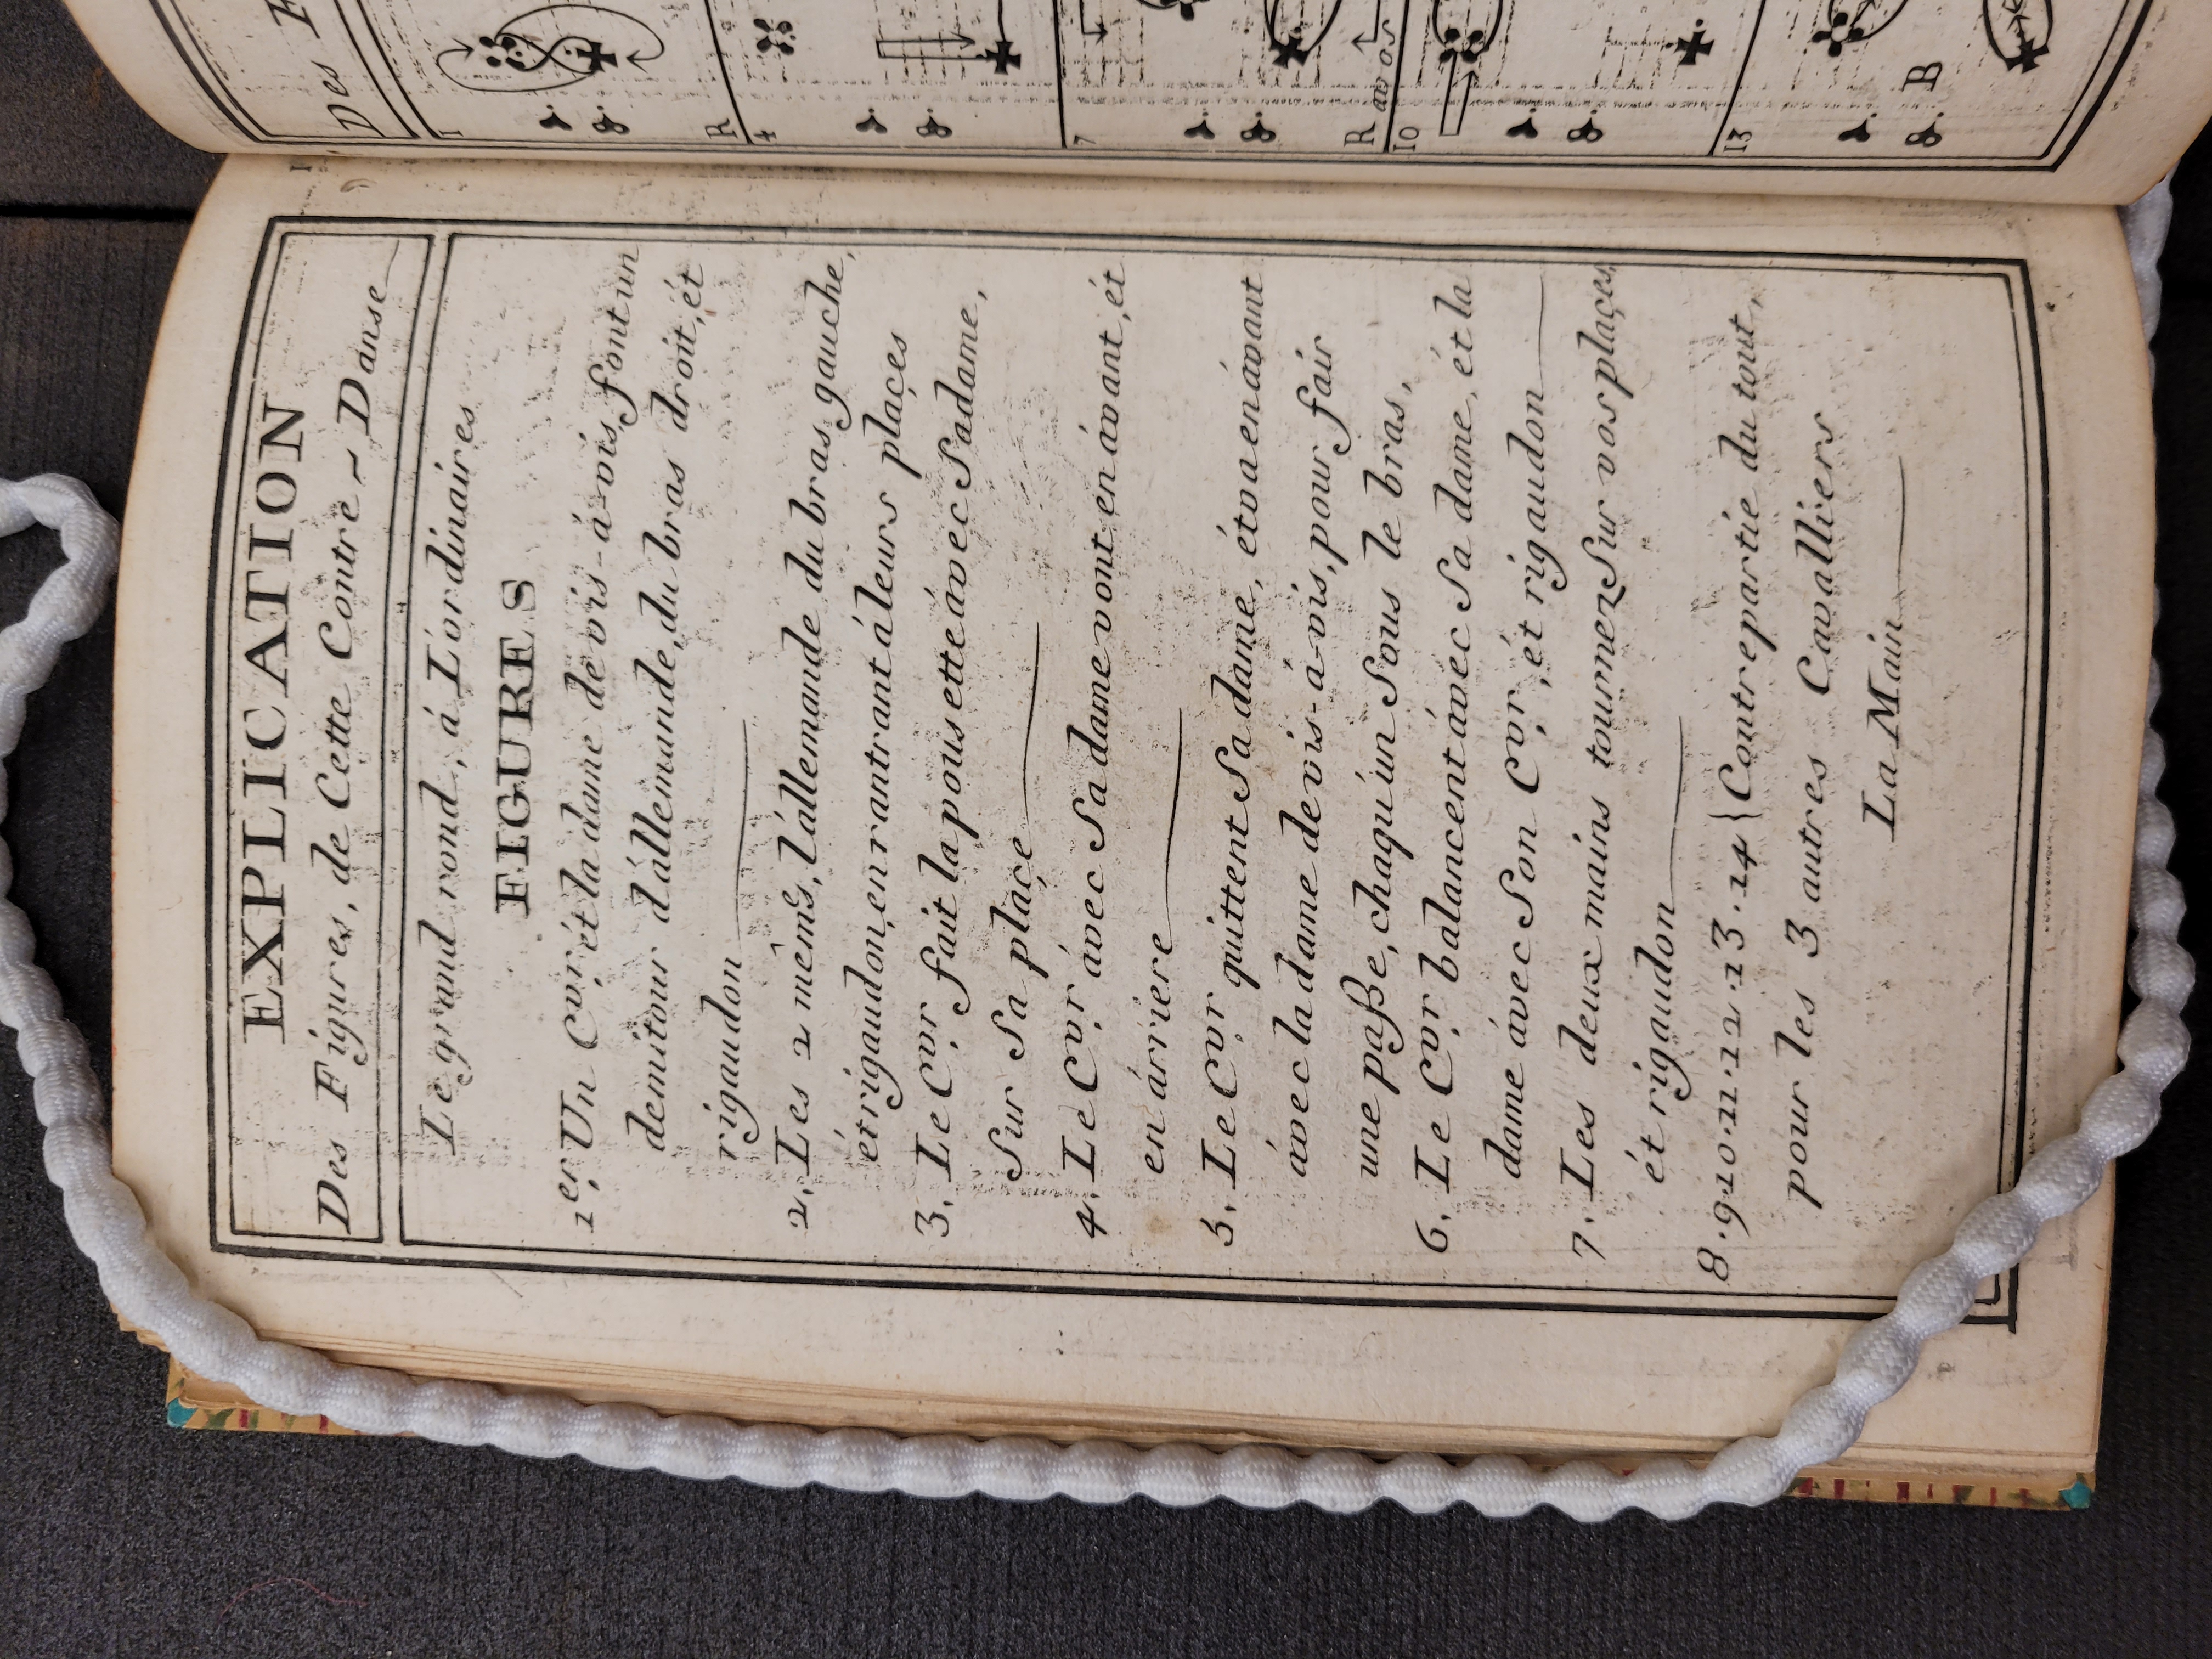 EXPLICATION
Des Figures, de Cette Contre ~ Danse
Le grand rond, á L'ordinaires
FIGURES
1er Un Cvr, ét la dame de vis-á-vis, font un
demitour d'állemande, du bras droit, ét
rigaudon
2. Les 2 mêmes, l'állemande du bras gauche,
ét rigaudon, en rantrant á leurs plaçes
3. Le Cvr, fait la poussette ávec Sa dame,
Sur Sa plaçe
4. Le Cvr, ávec Sa dame vont en ávant, ét
en árriere
5. Le Cvr, quittent Sa dame, ét va en ávant
ávec la dame de vis-á-vis, pour fair
une paße, chaqu'un Sous le bras,
6. Le Cvr, balancent ávec Sa dame, ét la
dame ávec Son Cvr, ét rigaudon
7. Les deux mains tournez Sur vos plaçes,
ét rigaudon
8. 9. 10. 11. 12. 13. 14 { Contrepartie du tout,
pour les 3 autres Cavalliers
La Main
Des
1
R
4
7
R
av os
10
13
B